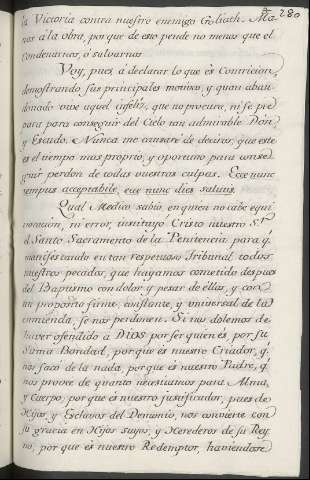 280
la Victoria contra nuestro enemigo Goliath. Ma-
nos á la obra, por que de esto pende no menos que el
condenarnos, ó salvarnos
Voy, pues, a declarar lo que és Contricion,
demostrando sus principales motivos, y quan aban-
donado vive aquel infeliz, que no procura, ni se pre
para para conseguir del Cielo tan admirable Dón
y Escudo. Nunca me cansaré de deciros, que este
és el tiempo mas proprio, y oportuno para conse-
guir perdon de todas vuestras culpas. Ecce nunc
tempus acceptabile, ecce nunc dies salutis.
Qual Medico sabio, en quien no cabe equi
vocacion, ni error, instituyó Cristo nuestro S.r
el Santo Sacramento de la Penitencia para q.e
manifestando en tan respetuoso Tribunal todos
nuestros pecados, que hayamos cometido despues
del Baptismo con dolor, y pesár de éllos, y con
un proposito firme, constante, y universal de la
enmienda, se nos perdonen. Si nos dolemos de
haver ofendido a DIOS por ser quien és, por su
Suma Bondad, porque és nuestro Criador, q.e
nos saco de la nada, por que és nuestro Padre, q.e
nos provee de quanto necesitamos para Alma,
y Cuerpo, por que és nuestro justificador, pues de
Hijos, y Esclavos del Demonio, nos convierte con
su gracia en Hijos suyos, y Herederos de su Rey-
no, por que és nuestro Redemptor, haviendose